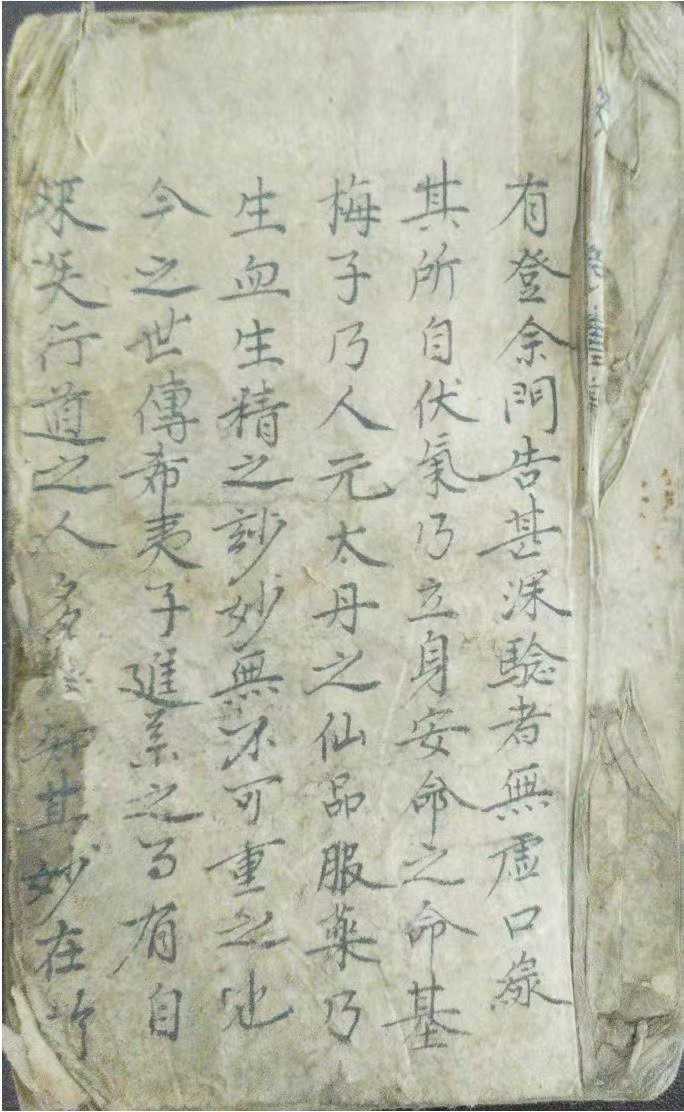 有登余門告甚深驗者無虛口緣
其所自伏氣乃立身安命之命基
梅子乃人元太丹之仙品服藥乃
生血生精之訬妙無不可重之也
今之世傳希夷子進系之為有自
深矣行道之人多知其妙在所